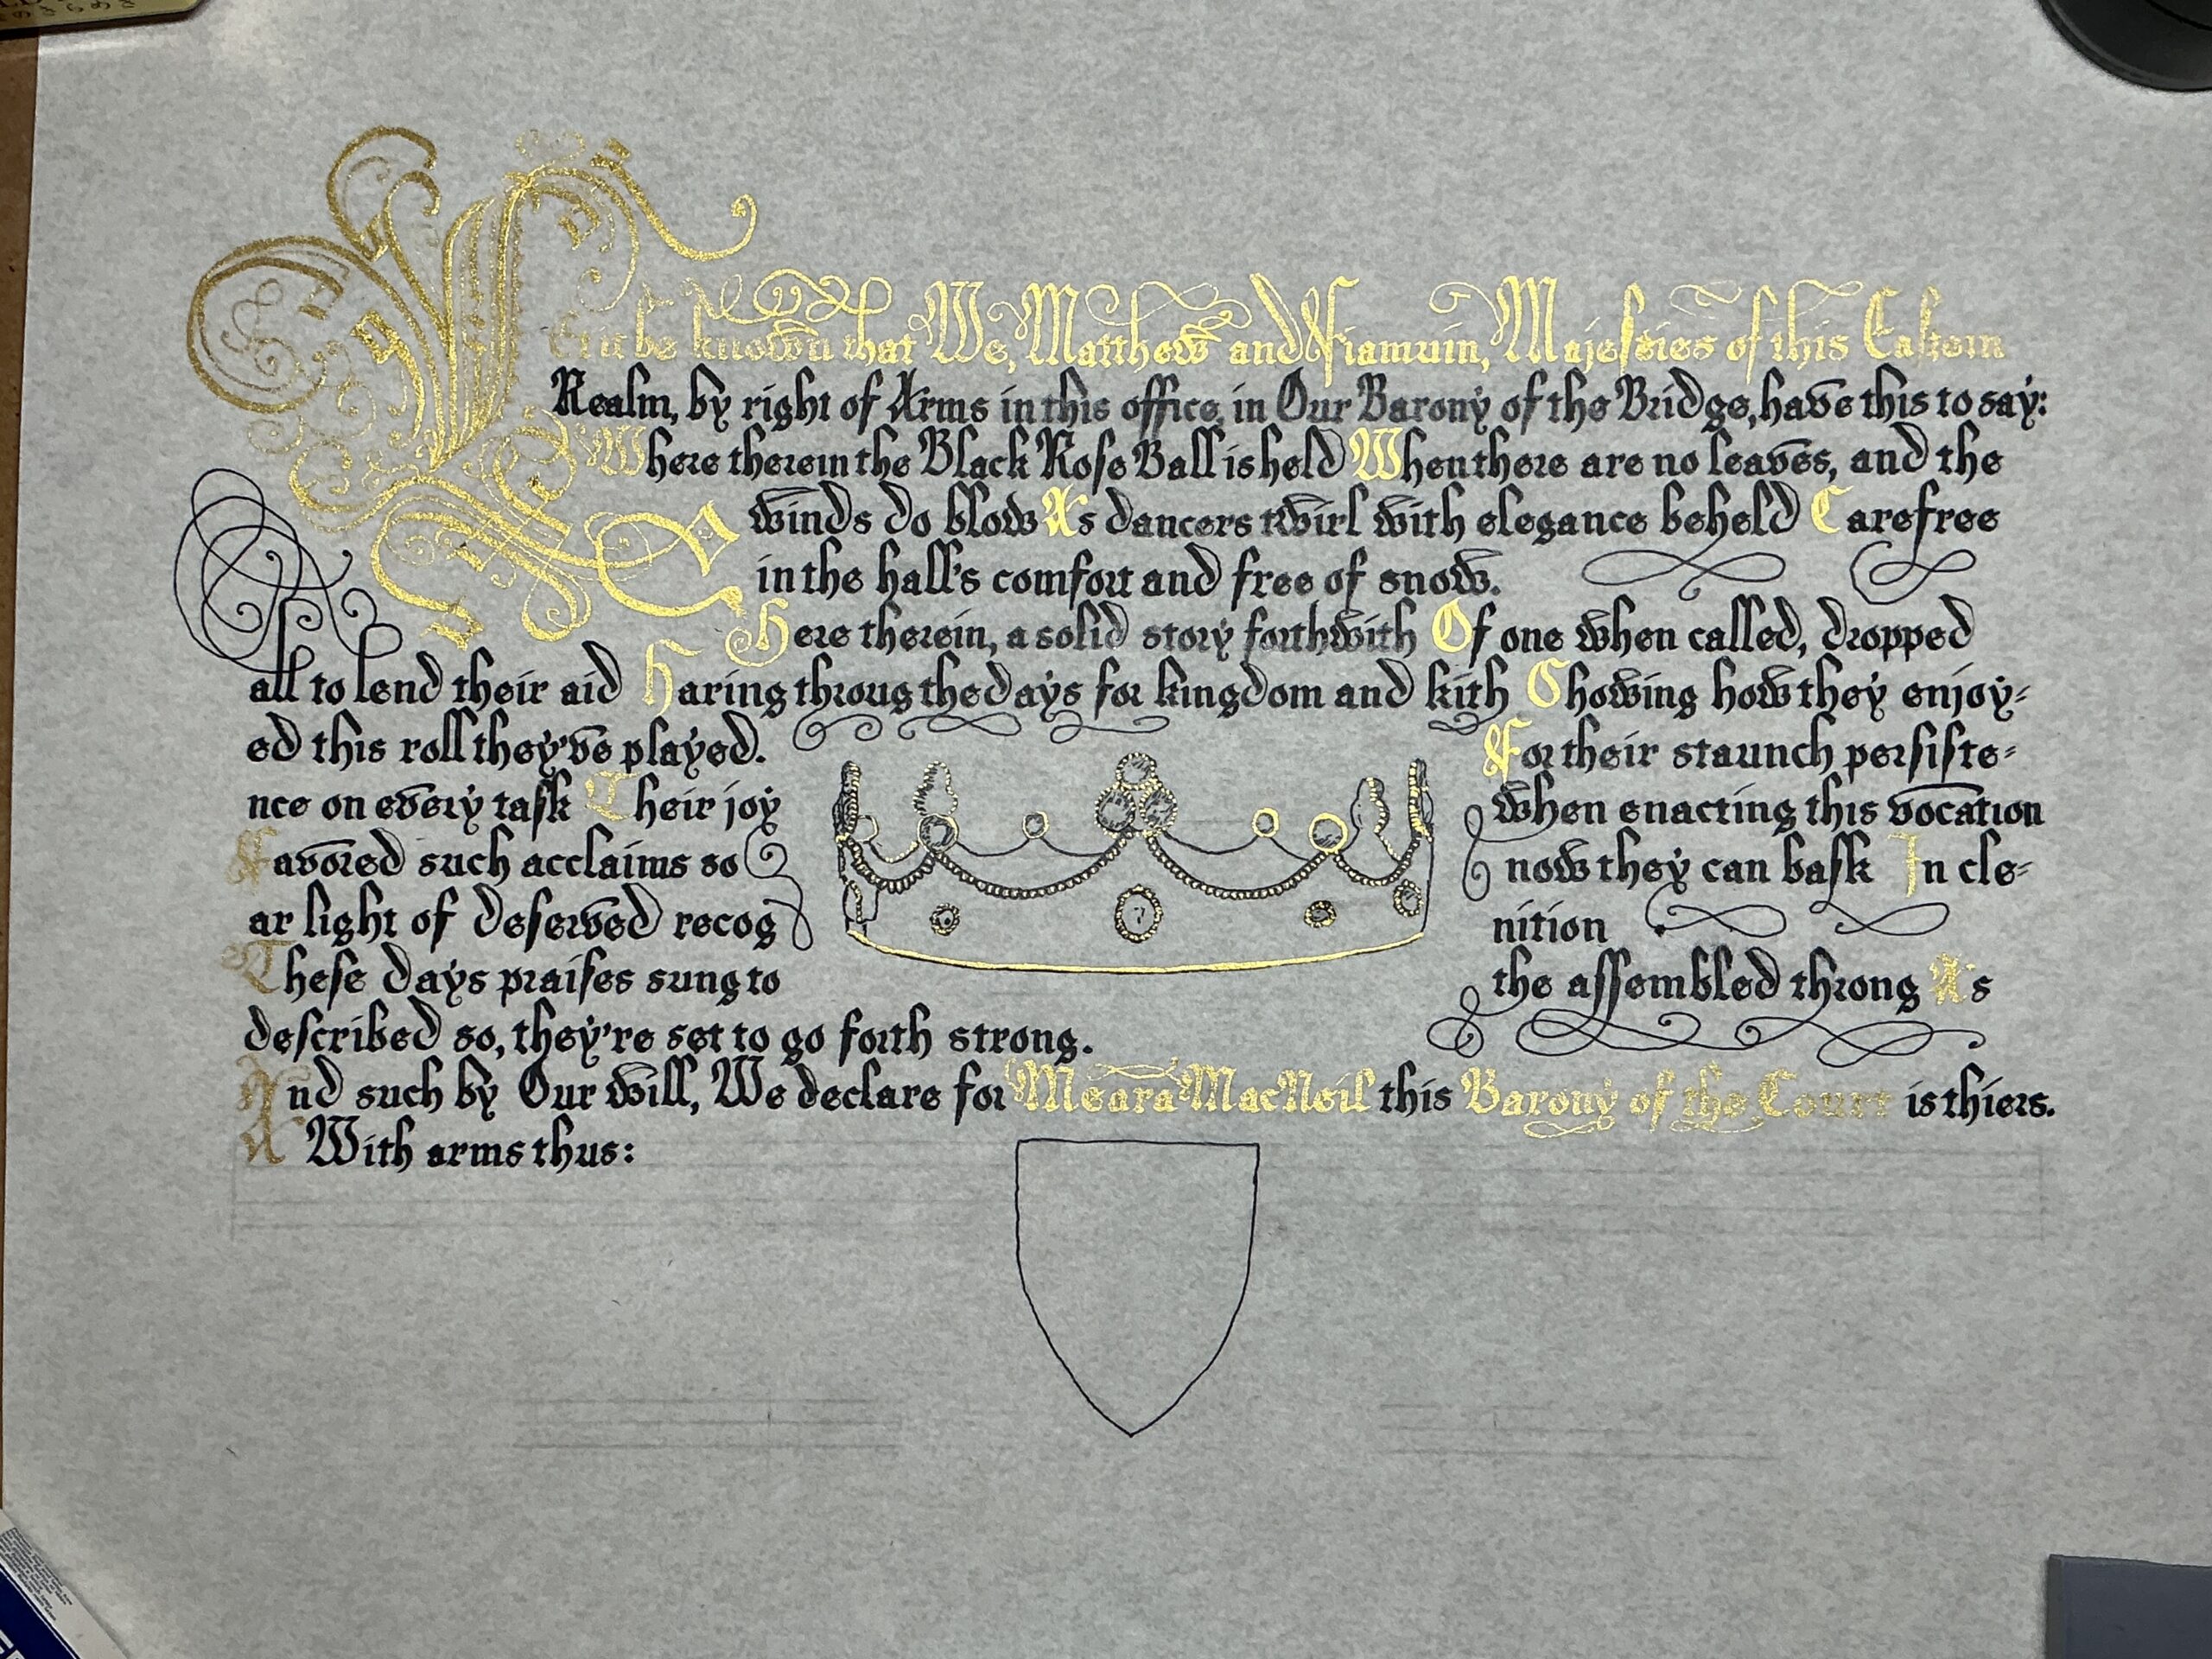 Let it be known that We, Matthew and Fiamuin, Majesties of this Eastern
Realm, by right of Arms in this office, in Our Barony of the Bridge, have this to say:
Where therein the Black Rose Ball is held When there are no leaves, and the
winds do blow As dancers twirl with elegance beheld Carefree
in the hall's comfort and free of snow.
Here therein, a solid story forthwith Of one when called, dropped
all to lend their aid Haring throug the days for kingdom and kith Chowing how they enjoy-
ed this roll they've played. For their staunch persiste-
nce on every task Their joy when enacting this vocation
Favored such acclaims so now they can bask In cle-
ar light of deserved recog nition
These days praises sung to the assembled throng As
described so, they're set to go forth strong.
And such by Our will, We declare for Meara MacNeil this Barony of the Court is thiers.
With arms thus: